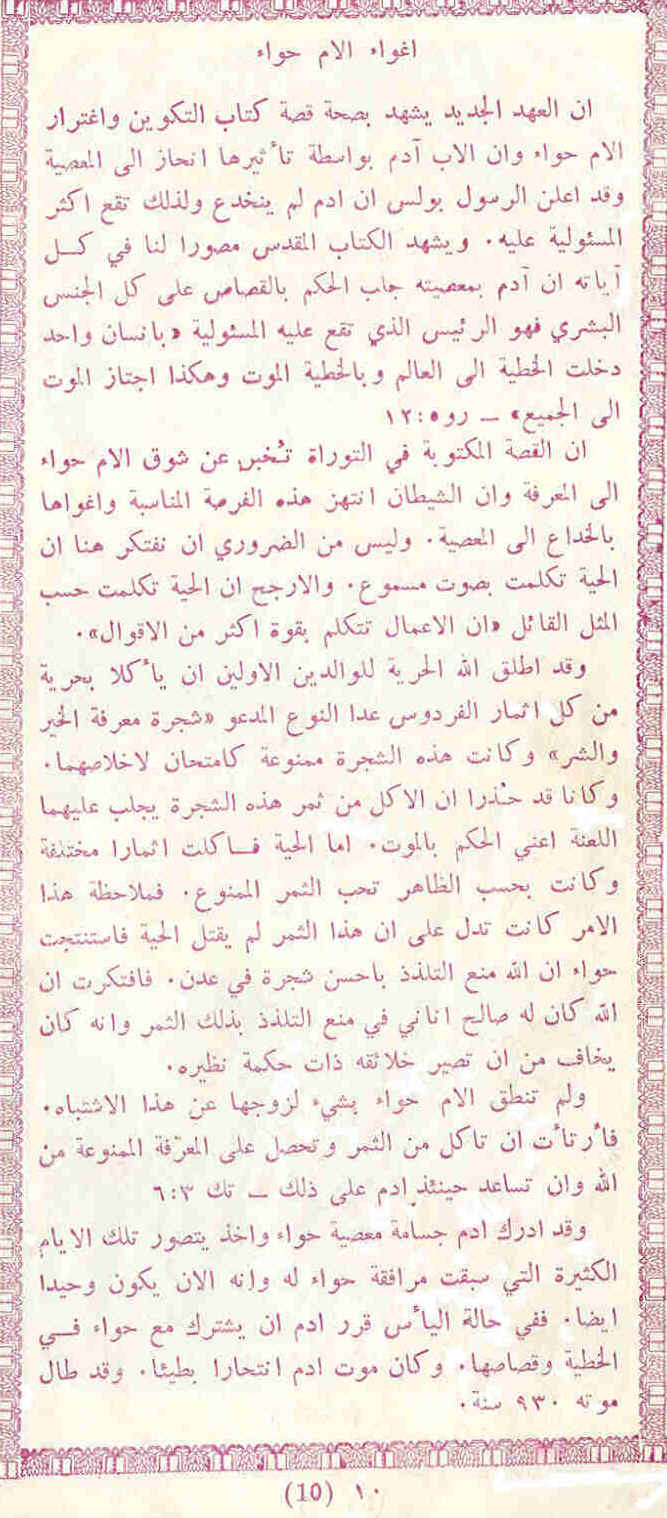 اغواء الام حواء
ان العهد الجديد يشهد بصحة قصة كتاب التكوين واغترار
الام حواء وان الاب آدم بواسطة تأثيرها انحاز الى المعصية
وقد اعلن الرسول بولس ان ادم لم ينخدع ولذلك تقع اكثر
المسئولية عليه. ويشهد الكتاب المقدس مصورا لنا في كل
آياته ان آدم بمعصيته جلب الحكم بالقصاص على كل الجنس
البشري فهو الرئيس الذي تقع عليه المسئولية «بانسان واحد
دخلت الخطية الى العالم وبالخطية الموت وهكذا اجتاز الموت
الى الجميع» — رو ٥:١٢
ان القصة المكتوبة في التوراة تُخبر عن شوق الام حواء
الى المعرفة وان الشيطان انتهز هذه الفرصة المناسبة واغواها
بالخداع الى المعصية. وليس من الضروري ان نفتكر هنا ان
الحية تكلمت بصوت مسموع. والارجح ان الحية تكلمت حسب
المثل القائل «ان الاعمال تتكلم بقوة اكثر من الاقوال».
وقد اطلق الله الحرية للوالدين الاولين ان يأكلا بحرية
من كل اثمار الفردوس عدا النوع المدعو «شجرة معرفة الخير
والشر» وكانت هذه الشجرة ممنوعة كامتحان لاخلاصهما.
وكانا قد حُذرا ان الاكل من ثمر هذه الشجرة يجلب عليهما
اللعنة اعني الحكم بالموت. اما الحية فاكلت اثمارا مختلفة
وكانت بحسب الظاهر تحب الثمر الممنوع. فملاحظة هذا
الامر كانت تدل على ان هذا الثمر لم يقتل الحية فاستنتجت
حواء ان الله منع التلذذ باحسن شجرة في عدن. فافتكرت ان
الله كان له صالح اناني في منع التلذذ بذلك الثمر وانه كان
يخاف من ان تصير خلائقه ذات حكمة نظيره.
ولم تنطق الام حواء بشيء لزوجها عن هذا الاشتباه.
فأرتأت ان تاكل من الثمر وتحصل على المعرفة الممنوعة من
الله وان تساعد حينئذ ادم على ذلك — تك ٣:٦
وقد ادرك ادم جسامة معصية حواء واخذ يتصور تلك الايام
الكثيرة التي سبقت مرافقة حواء له وانه الان يكون وحيدا
ايضا. ففي حالة اليأس قرر ادم ان يشترك مع حواء في
الخطية وقصاصها. وكان موت ادم انتحارا بطيئا. وقد طال
موته ٩٣٠ سنة.
١٠ (10)